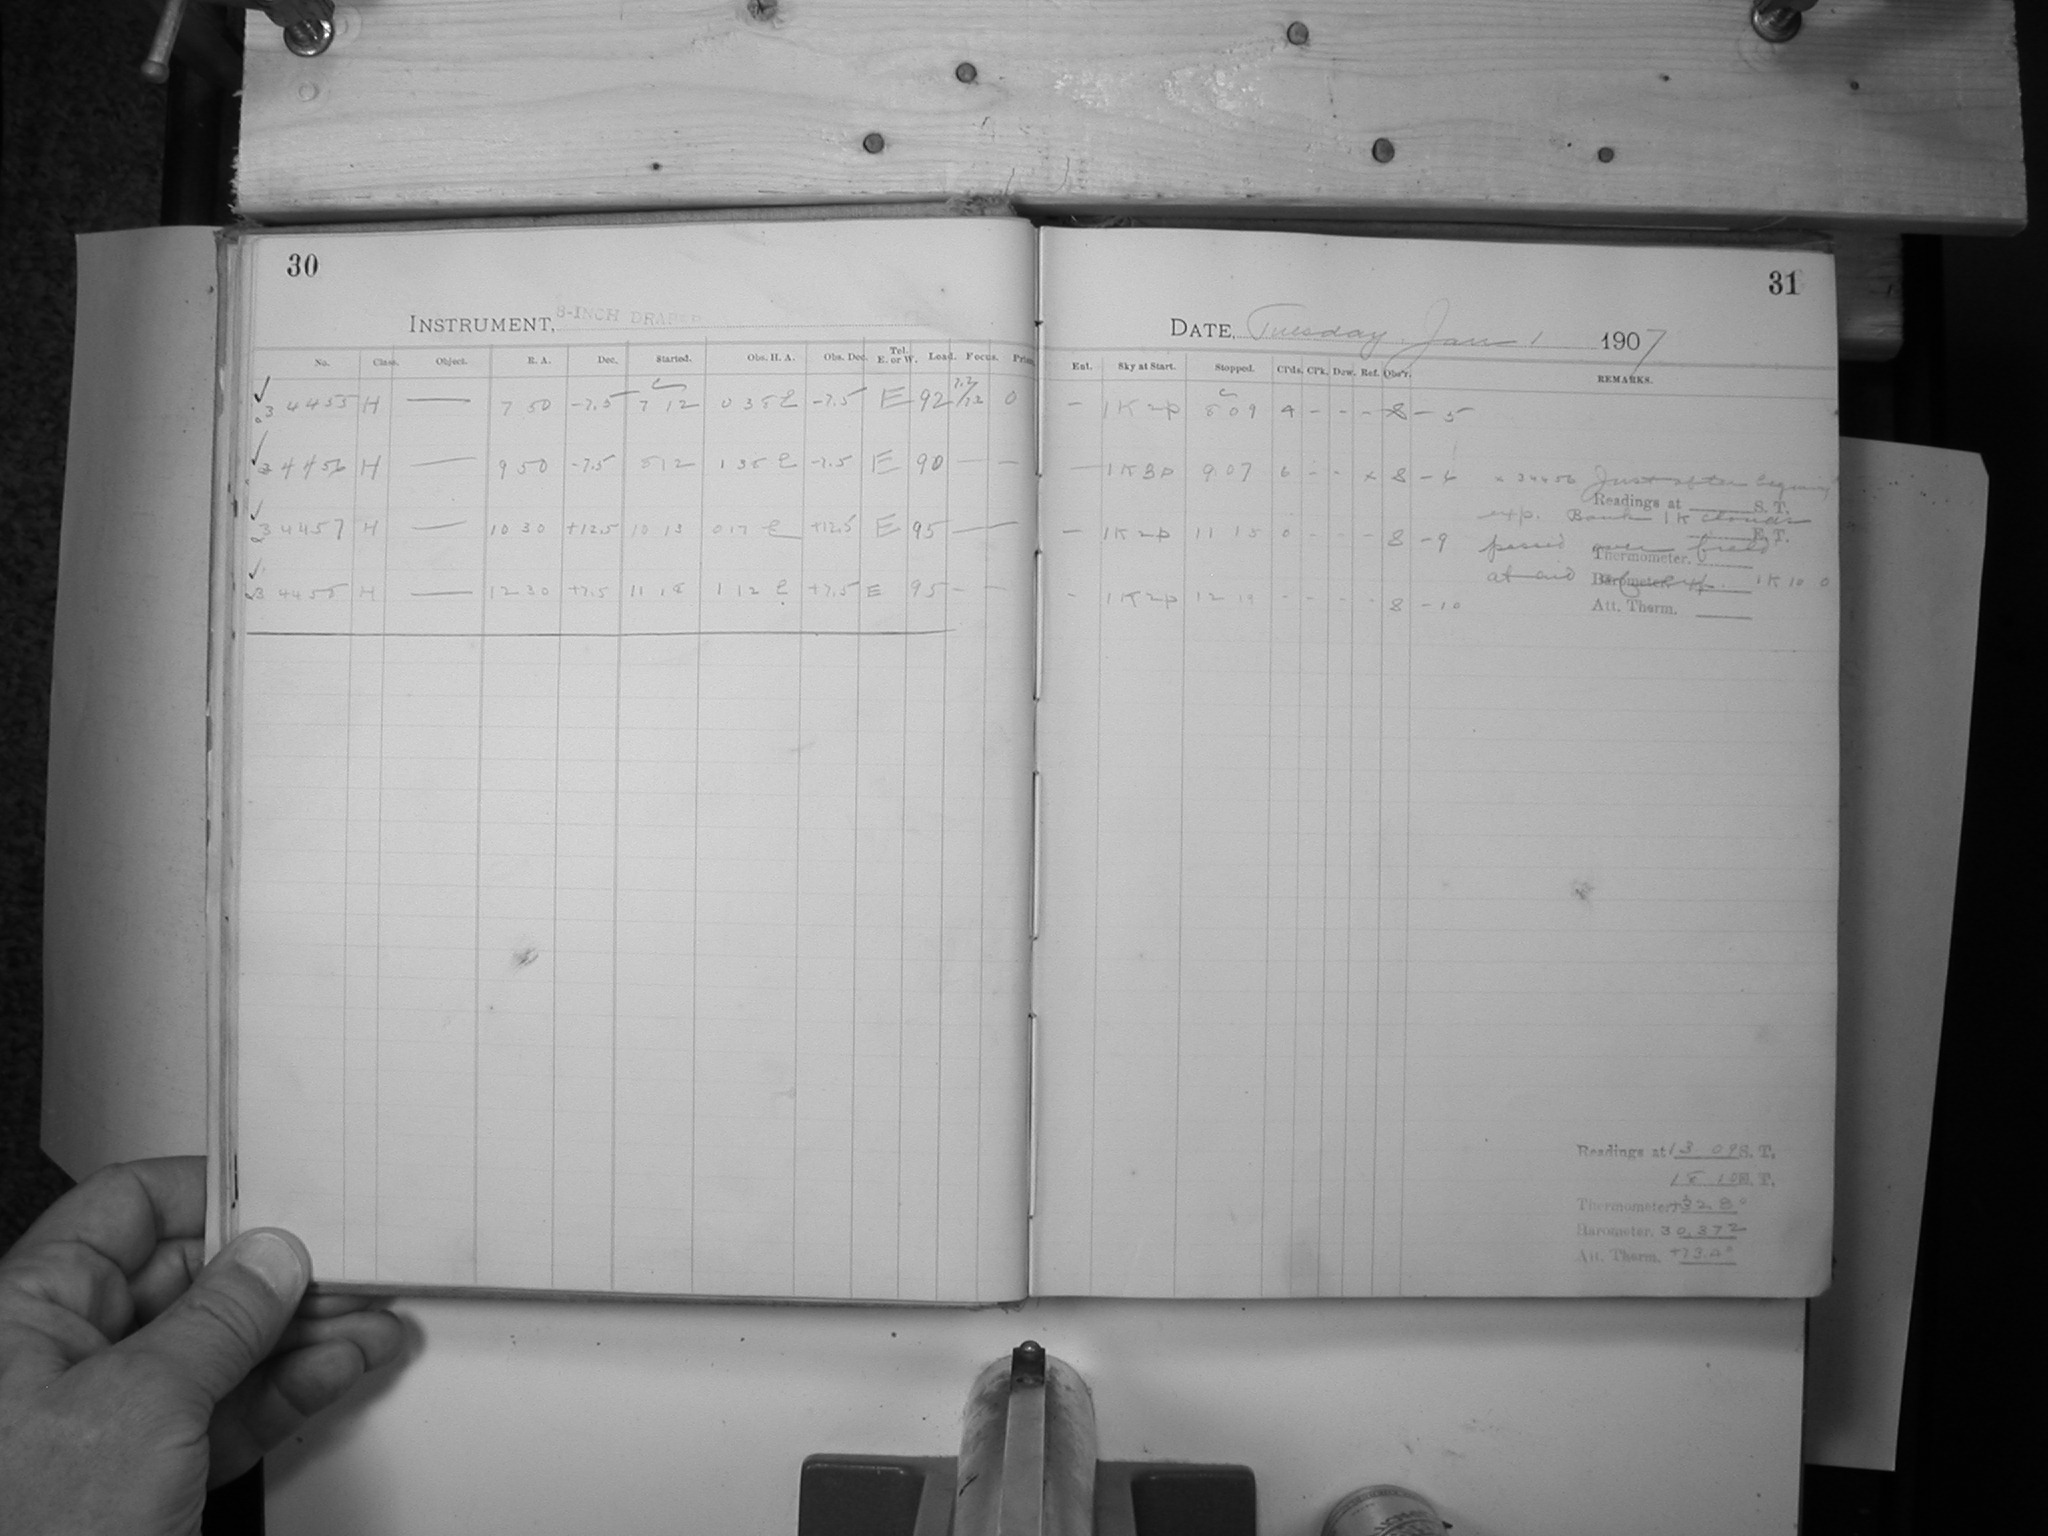 30
INSTRUMENT, 8-INCH DRAPER
No. Class. Object. R. A. Dec. Started. Obs. H. A. Obs. Dec. Tel. E. or W. Load. Focus. Prism.
34455 H — 7 50 -7.5 7 12 0 38 E -7.5 E 92 0
34456 H — 9 50 -7.5 8 12 1 38 E -7.5 E 90 — —
34457 H — 10 30 +12.5 10 13 0 17 E +12.5 E 95 —
34458 H — 12 30 +7.5 11 18 1 12 E +7.5 E 95 — —
31
DATE, Tuesday Jan 1 1907
Ent. Sky at Start. Stopped. Cl'ds. Cl'k. Dew. Ref. Obs'r. REMARKS.
— 1K2p 8 09 4 - - - 8 - 5
— 1K3p 9 07 6 - - x 8 - 6
— 1K2p 11 15 0 - - - 8 - 9
- 1K2p 12 19 - - - - 8 - 10
x 34456 Just after beginning
Readings at S. T.
exp. Bank 1K clouds
E. T.
passed over field
Thermometer.
at end of exp. 1K 10 0
Barometer.
Att. Therm.
Readings at 13 09 S. T.
18 10 E. T.
Thermometer. +32.8°
Barometer. 30.372
Att. Therm. +73.0°